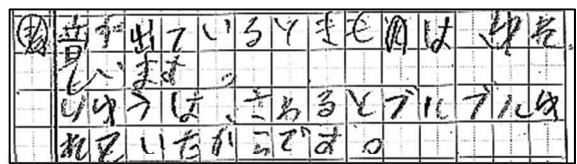 ㋐ 音が出ているときも月は、ゆれ
ています。
りゆうは、さわるとブルブルゆ
れていたからです。